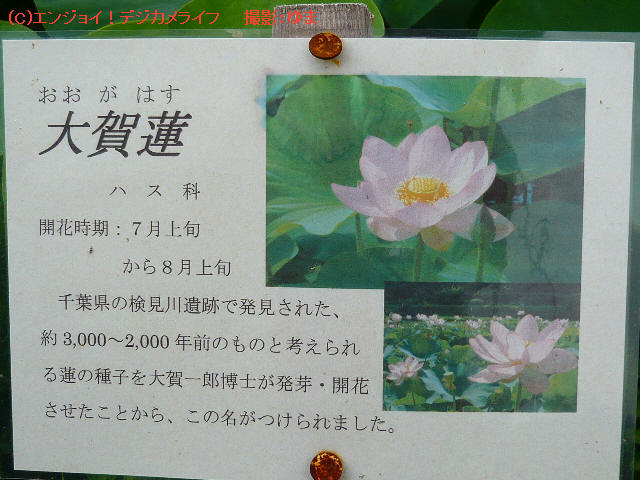 (c)エンジョイ！デジカメライフ
おお が はす
大賀蓮
ハス科
開花時期：７月上旬
から８月上旬
千葉県の検見川遺跡で発見された、
約3,000～2,000年前のものと考えられ
る蓮の種子を大賀一郎博士が発芽・開花
させたことから、この名がつけられました。